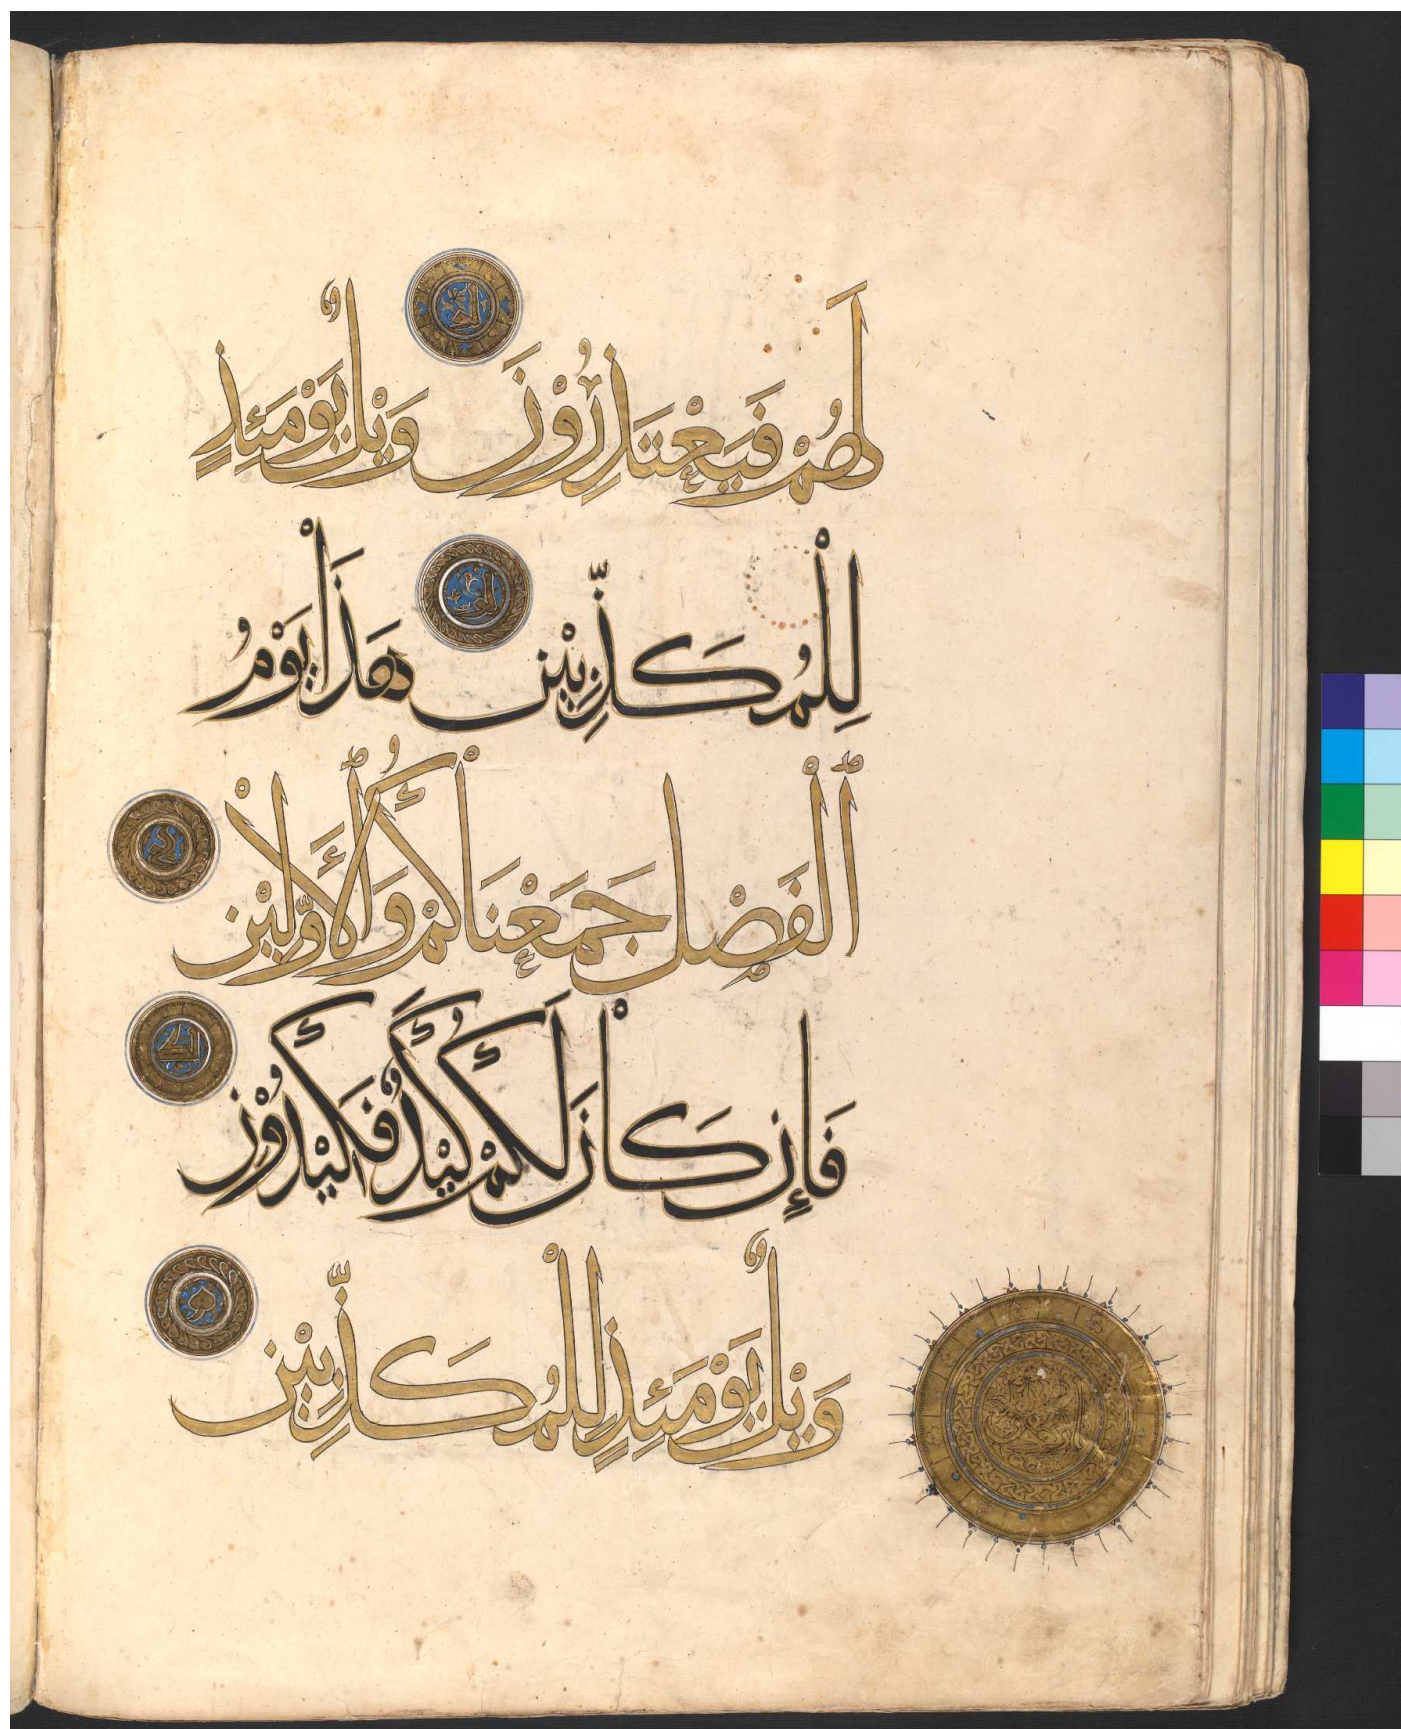 لَهُمْ فَيَعْتَذِرُوْنَ وَيْلٌ يَوْمَئِذٍ
لِلْمُكَذِّبِيْن هَذَا يَوْمُ
ٱلْفَصْلِ جَمَعْنَاكُمْ وَٱلْأَوَّلِيْن
فَإِن كَاْنَ لَكُمْ كَيْدٌ فَكِيْدُوْن
وَيْلٌ يَوْمَئِذٍ لِلْمُكَذِّبِيْن